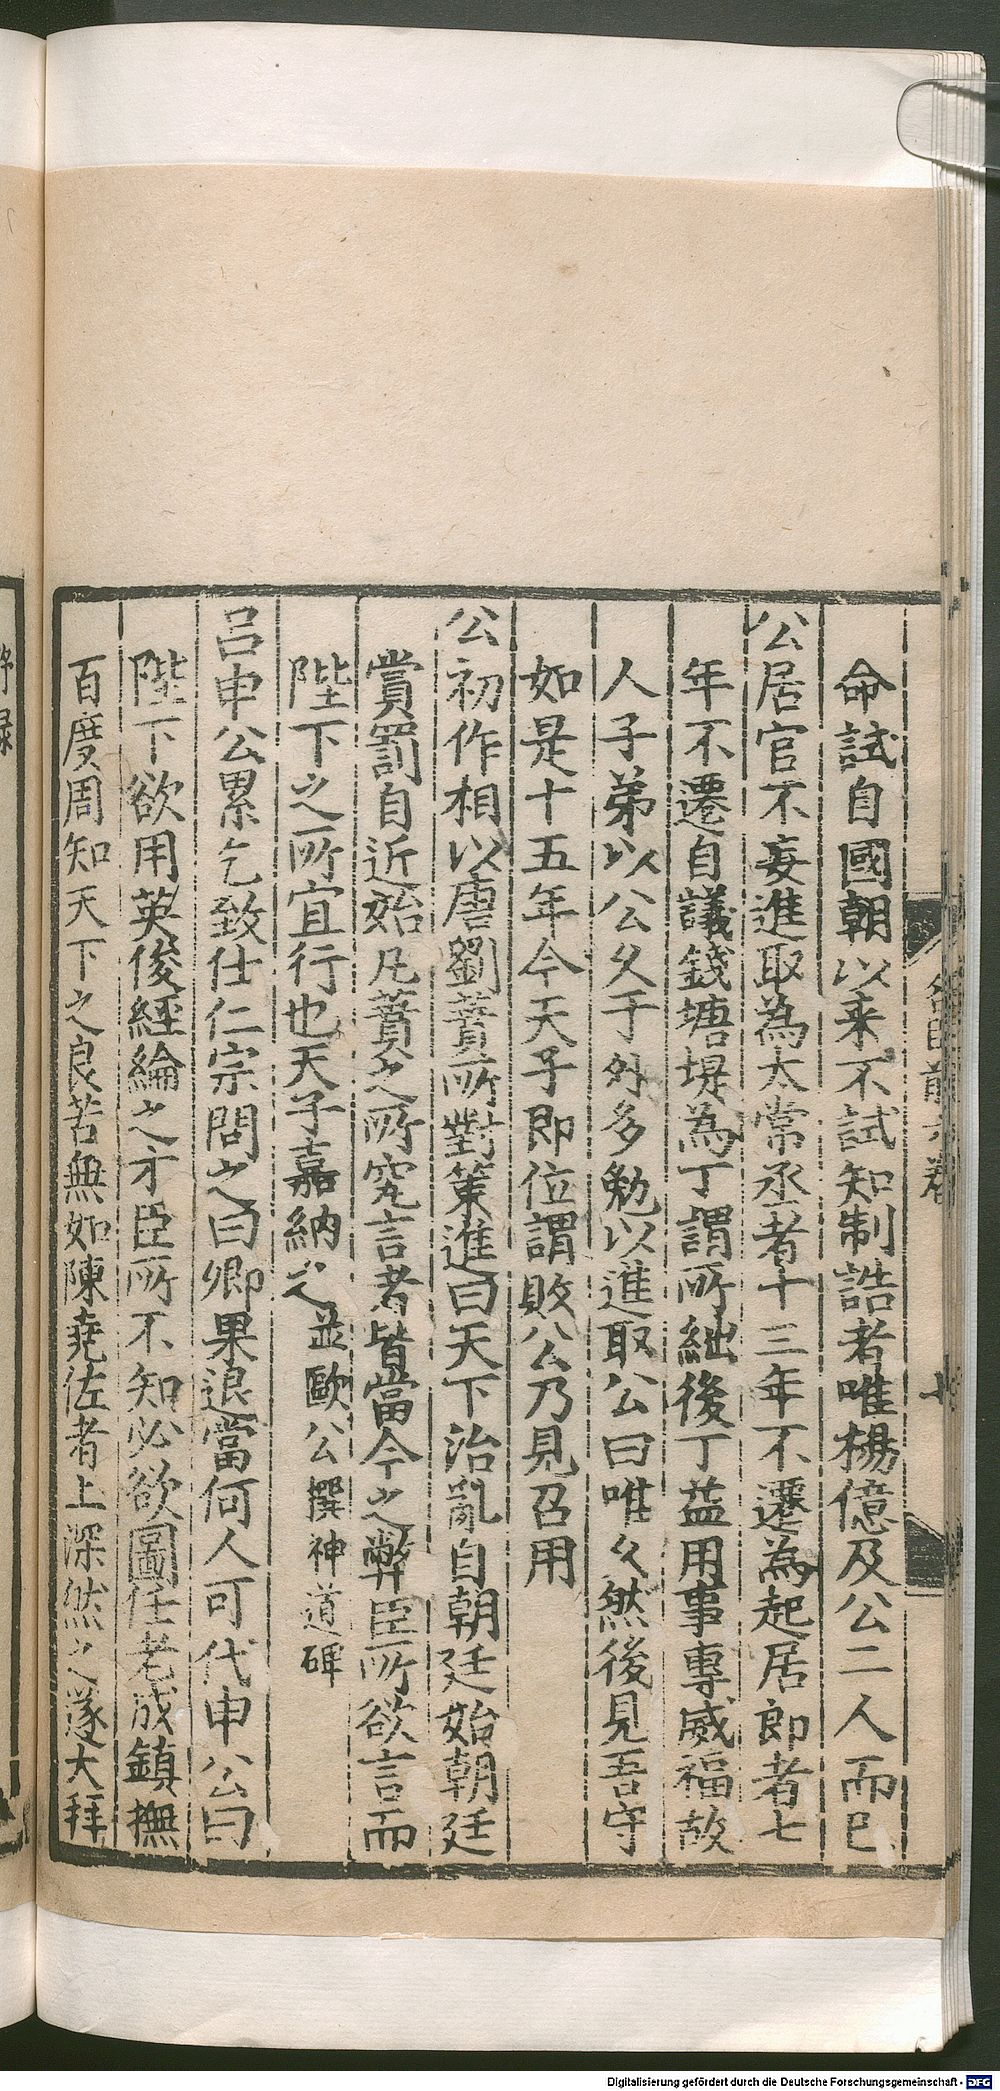 命試自國朝以来不試知制誥者唯楊億及公二人而已
公居官不妄進取為太常丞者十三年不遷為起居郎者七
年不遷自議錢塘堤為丁謂所絀後丁益用事專威福故
人子弟以公久于外多勉以進取公曰唯久然後見吾守
如是十五年今天子即位謂敗公乃見召用
公初作相以唐劉蕡所對策進曰天下治亂自朝廷始朝廷
賞罰自近始凡蕡之所究言者皆當今之弊臣所欲言而
陛下之所宜行也天子嘉納之並歐公撰神道碑
呂申公累乞致仕仁宗問之曰卿果退當何人可代申公曰
陛下欲用英俊經綸之才臣所不知必欲圖任老成鎮撫
百度周知天下之良苦無如陳堯佐者上深然之遂大拜
Digitalisierung gefördert durch die Deutsche Forschungsgemeinschaft - DFG